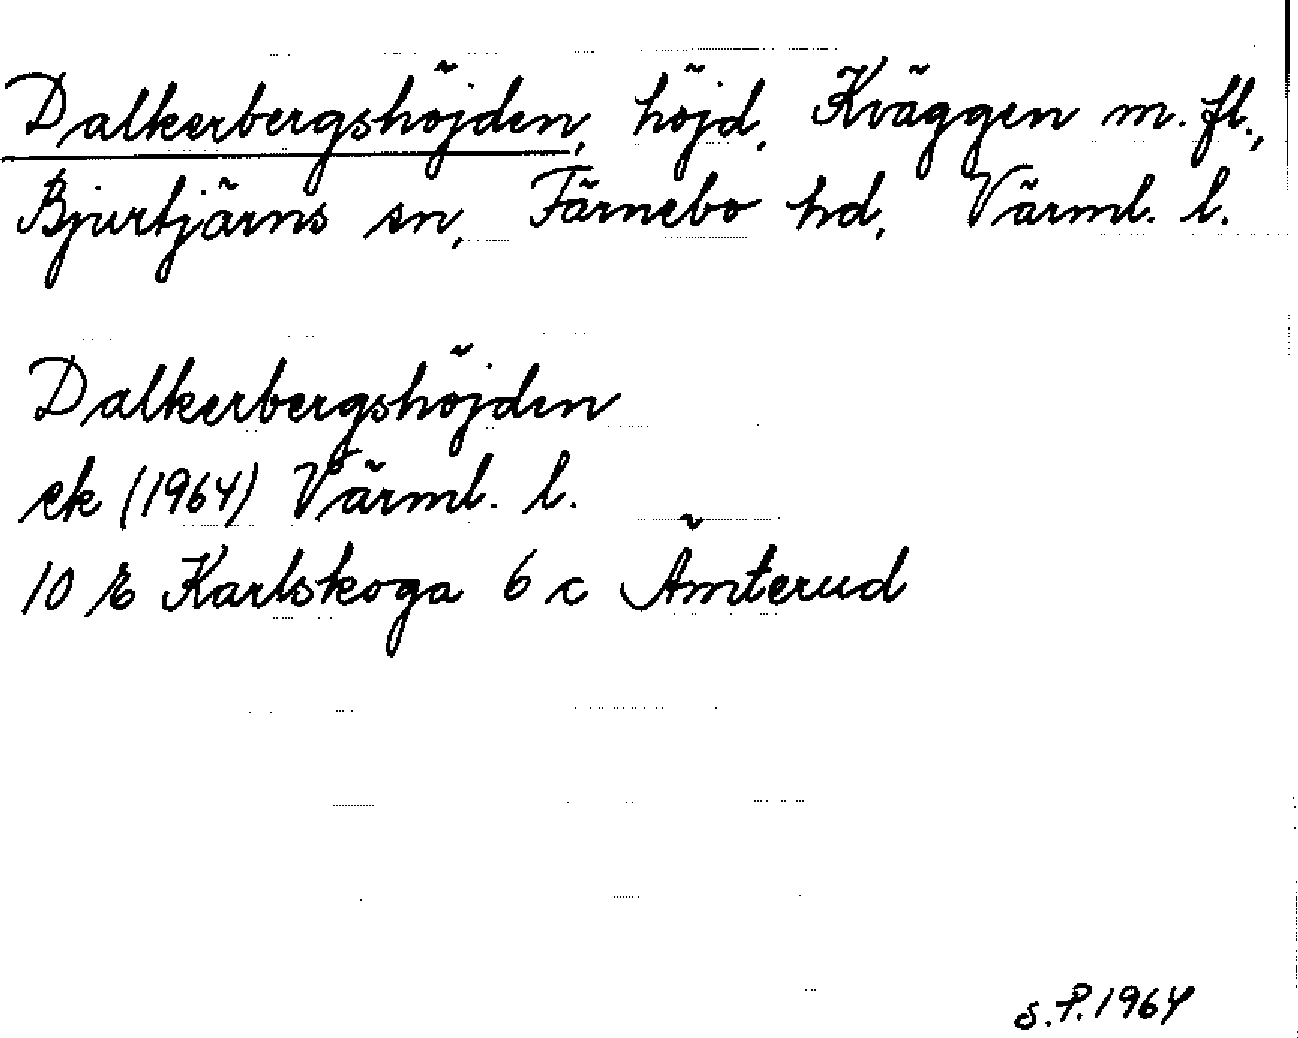 Dalkerbergshöjden, höjd, Kväggen m. fl.,
Bjurtjärns sn, Färnebo hd, Värml. l.
Dalkerbergshöjden
ek (1964) Värml. l.
10 E Karlskoga 6 c Ämterud
S.P. 1964